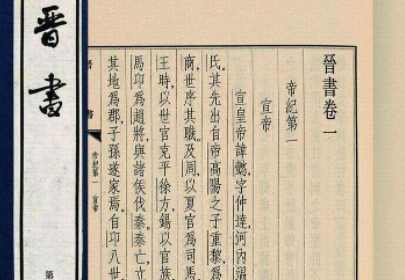 晉書
第
晉書卷一
帝紀第一
宣帝
宣皇帝諱懿,字仲達,河內溫
氏。其先出自帝高陽之子重黎,爲
商,世序其職。及周,以夏官爲司馬
王時,以世官克平徐方,錫以官族
馬卬爲趙將,與諸侯伐秦。秦亡,立
其地爲郡,子孫遂家焉。自卬八世
書
帝紀第一 宣帝